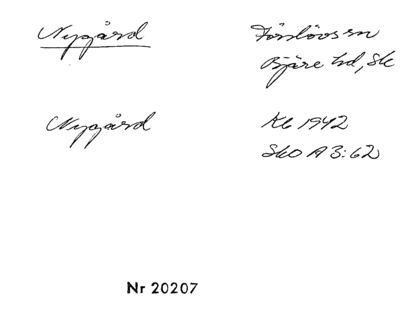 Nygård
Förslövs sn
Bjäre hd, Sk
Nygård
Kb 1942
SkO A 3:62
Nr 20207